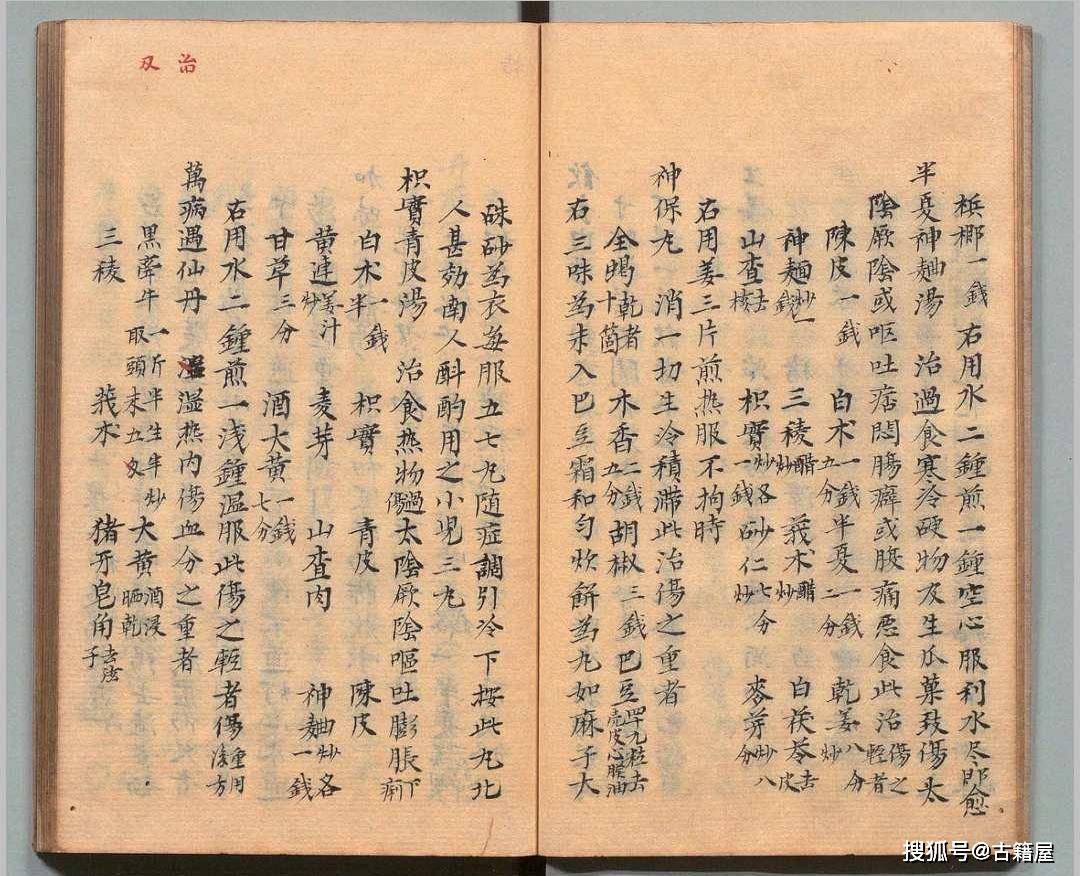 梹榔一錢 右用水二鍾煎一鍾空心服利水尽即愈
半夏神麯湯 治過食寒冷硬物及生瓜菓致傷太
陰厥陰或呕吐痞悶腸癖或腹痛恶食此治傷之輕者
陳皮一錢 白术一錢五分 半夏一錢二分 乾姜炒八分
神麯炒一錢 三稜醋炒 莪术醋炒 白茯苓去皮
山査去核 枳實炒各一錢 砂仁七分炒 麥芽炒八分
右用姜三片煎热服不拘時
神保丸 消一切生冷積滞此治傷之重者
全蝎乾者十箇 木香二錢五分 胡椒三錢 巴豆四十九粒去壳皮心膜油
右三味為末入巴豆霜和匀炊餅為丸如麻子大
硃砂為衣每服五七丸随症調引冷下按此丸北
人甚効南人斟酌用之小児三丸
枳實青皮湯 治食热物過傷太陰厥陰嘔吐膨脹下痢
白术半錢 枳實 青皮 陳皮
黄連姜汁炒 麦芽 山査肉 神麯炒各一錢
甘草三分 酒大黄一錢七分
右用水二鍾煎一浅鍾温服此傷之輕者傷重用後方
萬病遇仙丹 湿热内傷血分之重者
黒牽牛一斤半生半炒取頭末五 大黄酒浸晒乾
三稜 莪术 猪牙皂角去子
治
及
搜狐号@古籍屋